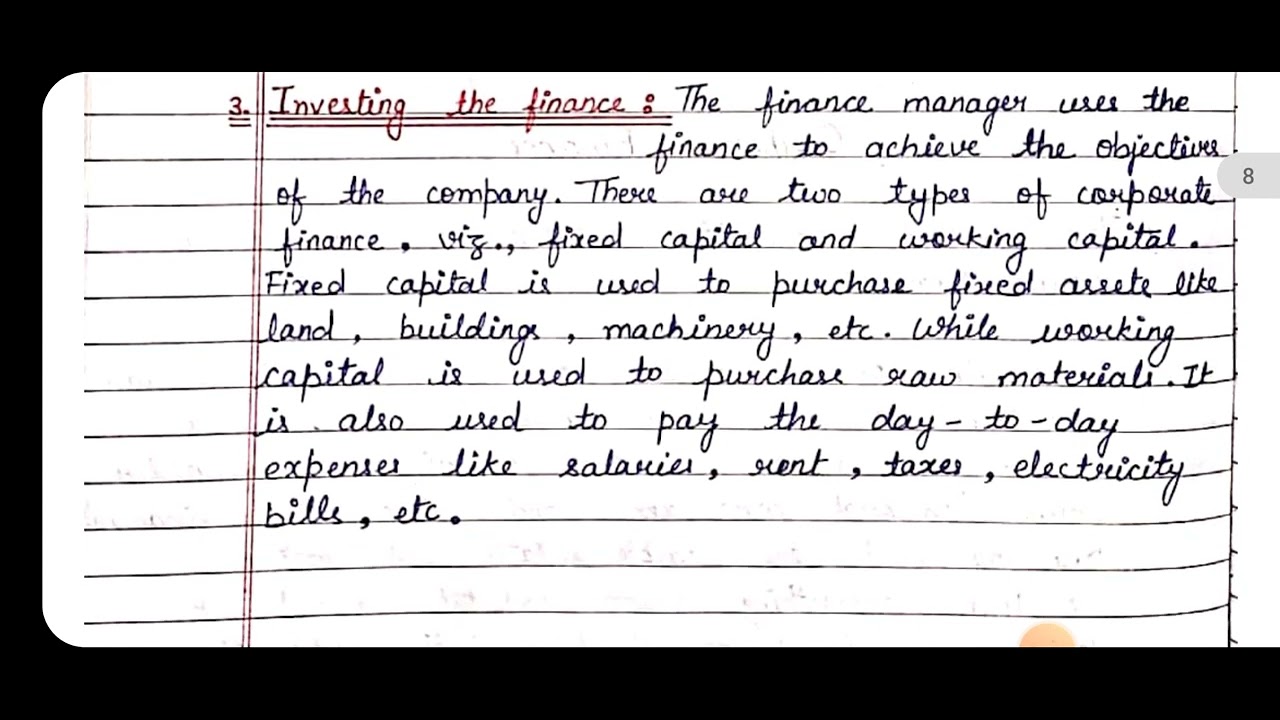 3. Investing the finance : The finance manager uses the
finance to achieve the objectives
of the company. There are two types of corporate
finance. viz., fixed capital and working capital.
Fixed capital is used to purchase fixed assets like
land, buildings, machinery, etc. While working
capital is used to purchase raw materials. It
is also used to pay the day-to-day
expenses like salaries, rent, taxes, electricity
bills, etc.
8